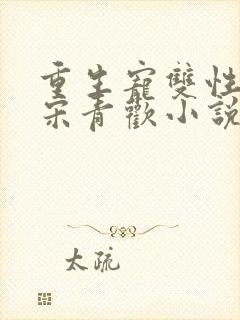 重生寵雙性
宋青歡小說
太疏